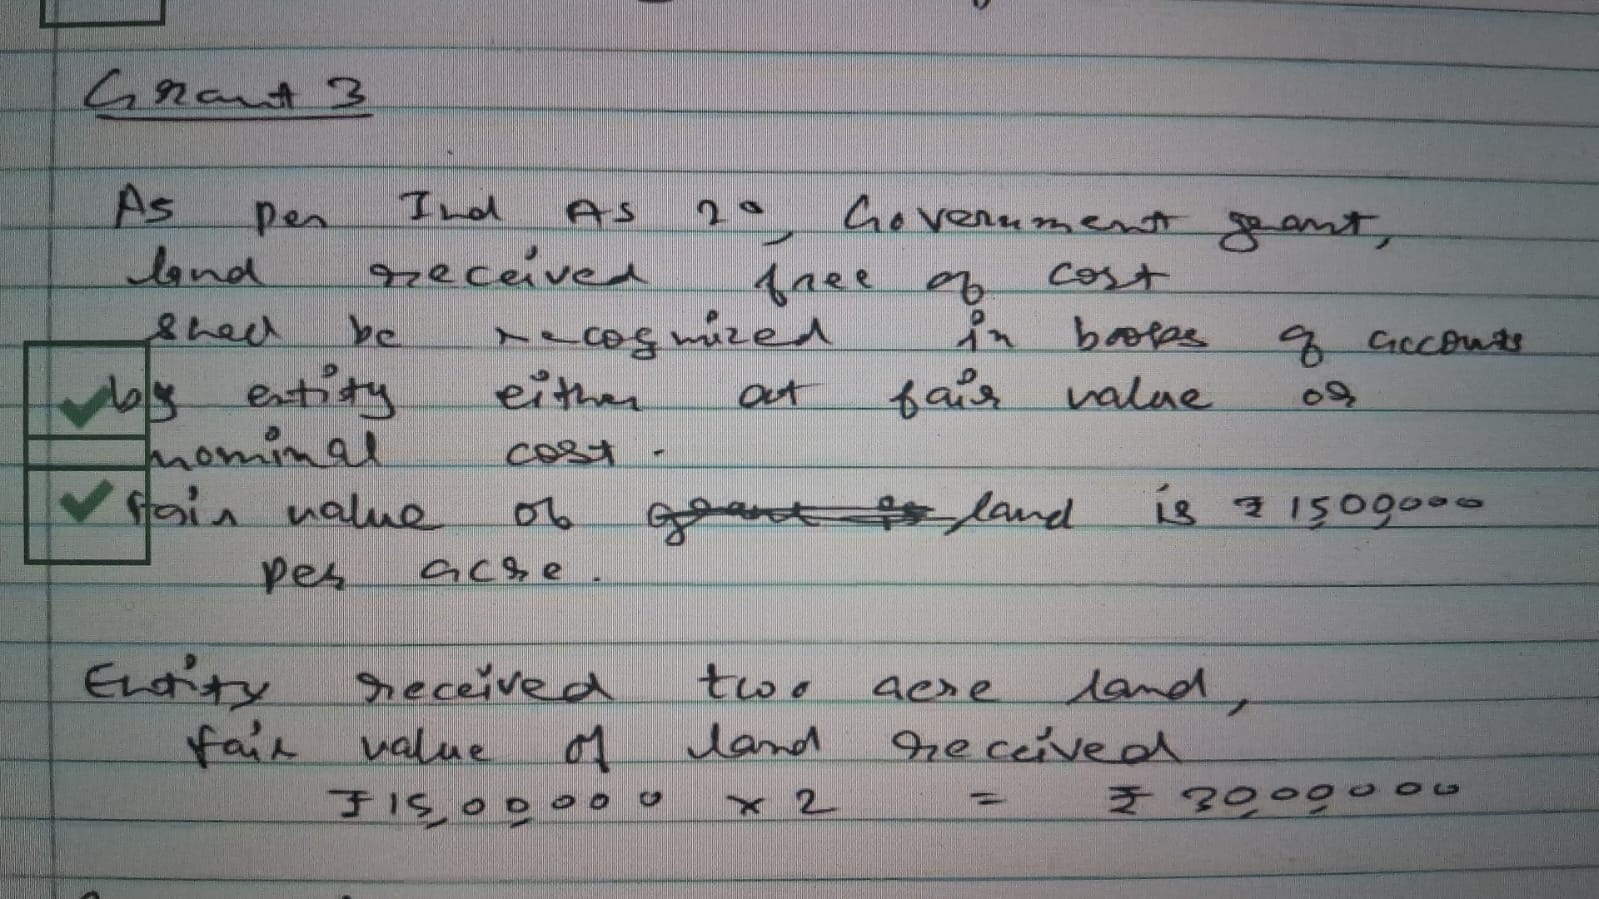 Grant 3
As per Ind AS 20, Government grant,
land received free of cost
shall be recognized in books of accounts
by entity either at fair value or
nominal cost.
fair value of land is ₹ 15,00,000
per acre.
Entity received two acre land,
fair value of land received
₹ 15,00,000 x 2 = ₹ 30,00,000